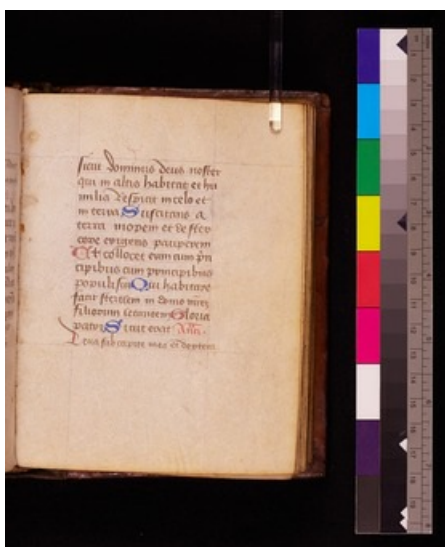 sicut dominus deus noster
qui in altis habitat et hu
milia respicit in celo et
in terra Suscitans a
terra inopem et de ster
core erigens pauperem
Ut collocet eum cum prin
cipibus cum principibus
populi sui Qui habitare
facit sterilem in domo matrem
filiorum letantem Gloria
patri Sicut erat
Leva eius sub capite meo et dextera